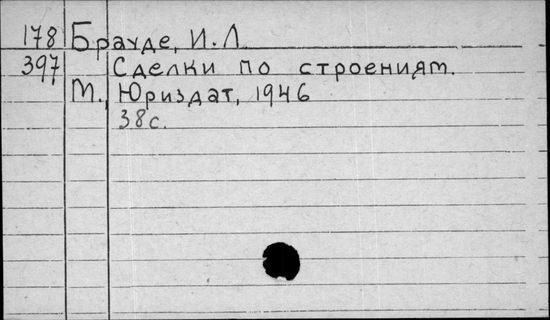 178 Брауде, И.Л.
397 Сделки по строениям.
М., Юриздат, 1946
38с.